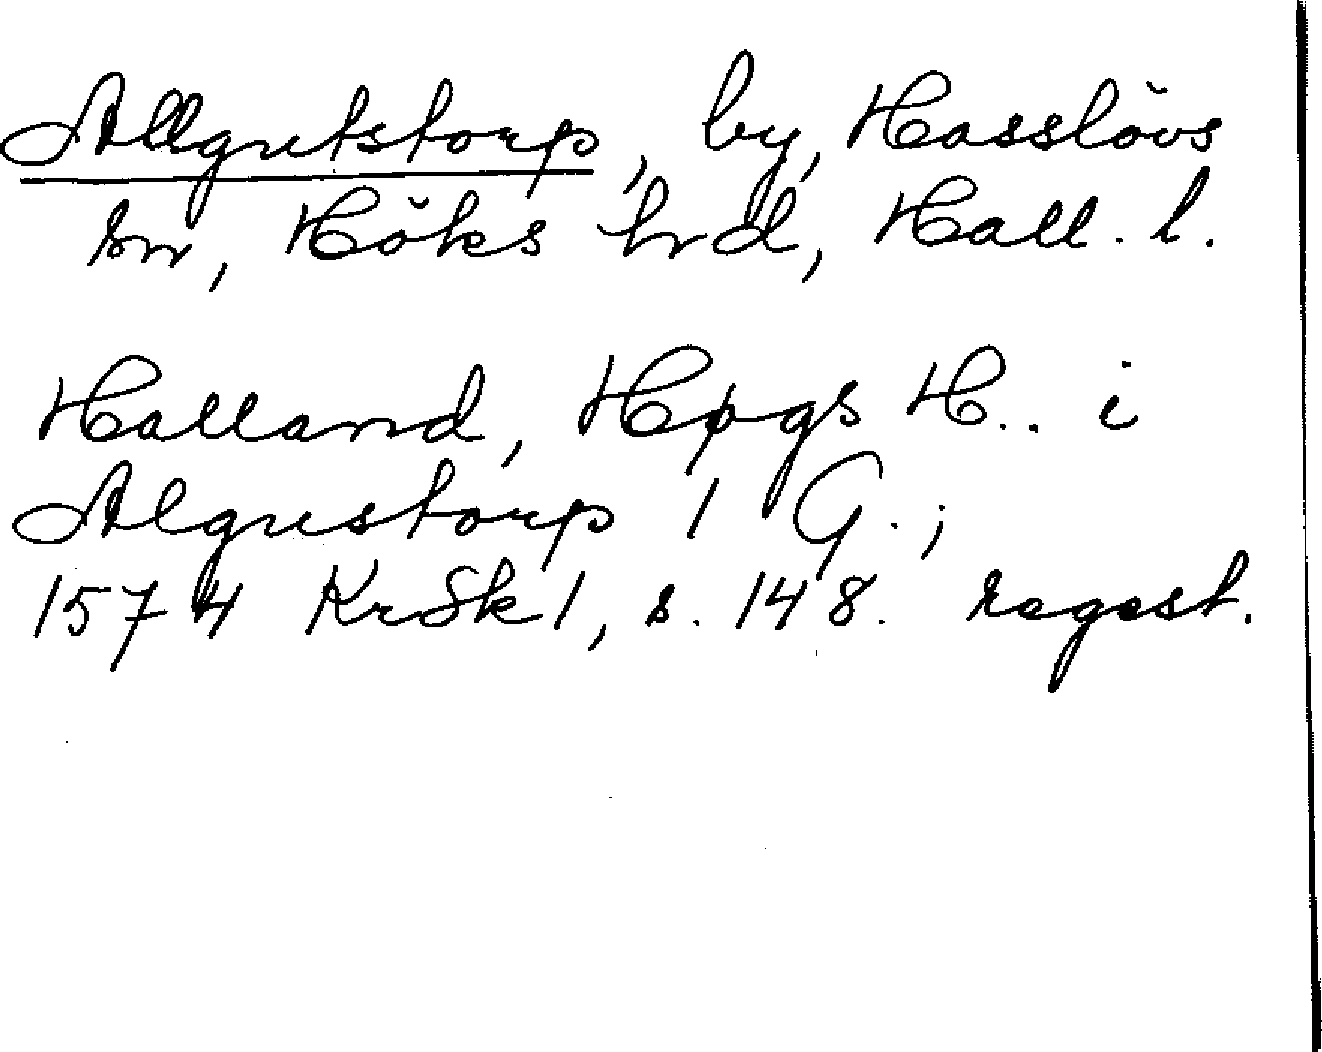 Allgutstorp, by, Hasslövs
sn, Höks hrd, Hall. l.
Halland, Høgs H.. i
Algustorp 1 G.;
1574 KrSk 1, s. 148. regest.